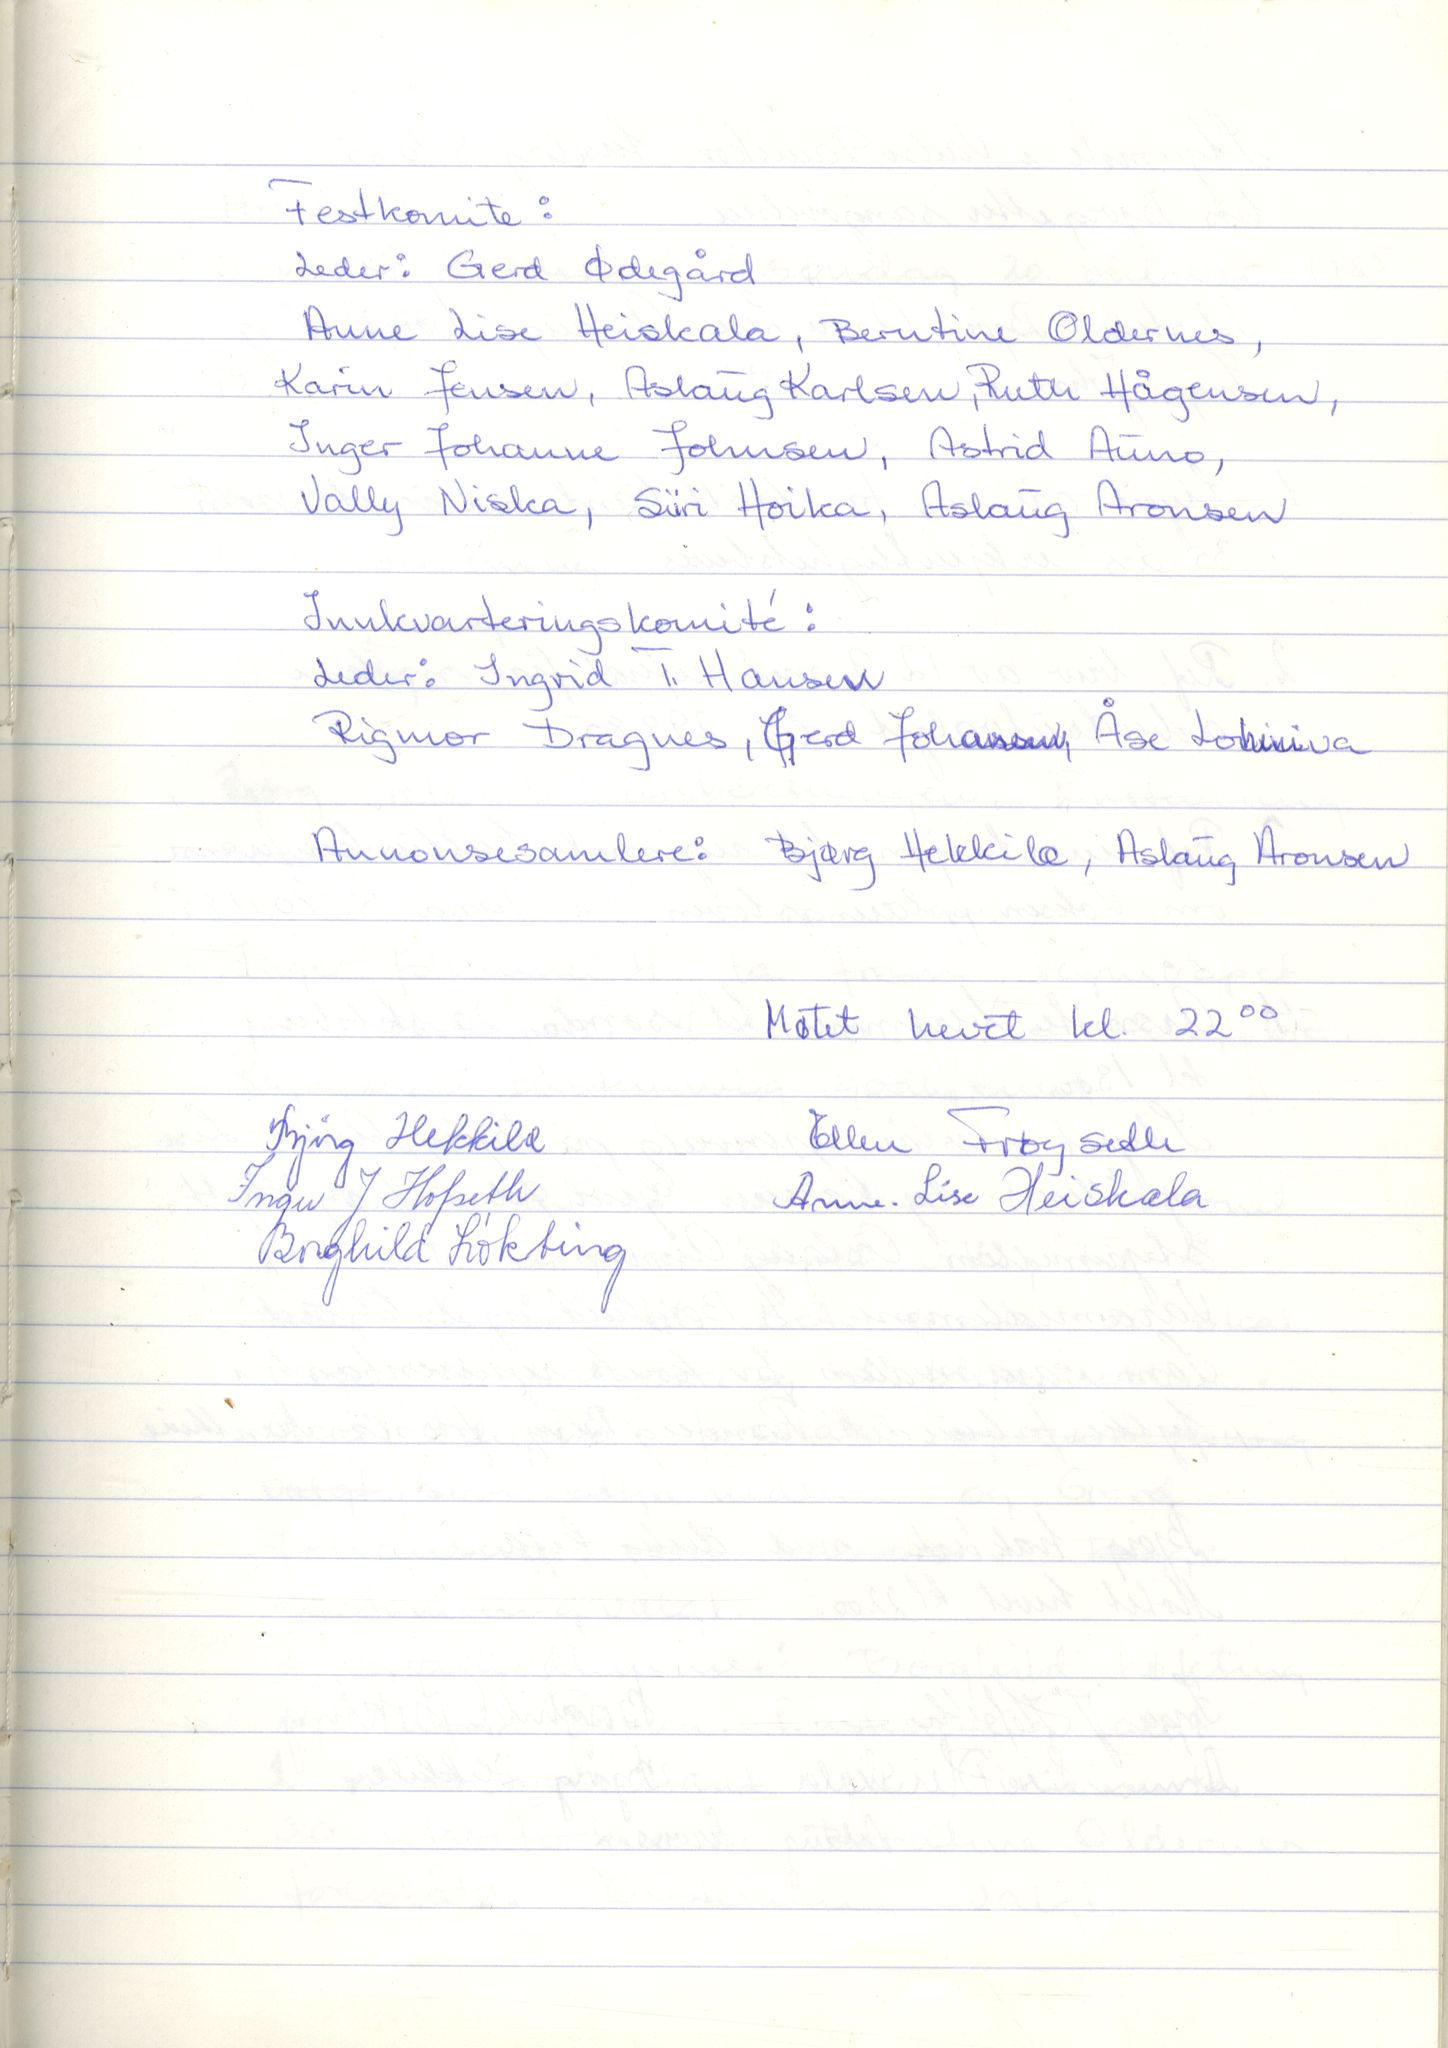 Festkomite:
Leder: Gerd Ødegård
Anne Lise Heiskala, Berntine Oldernes,
Karin Jensen, Aslaug Karlsen, Ruth Hågensen,
Inger Johanne Johnsen, Astrid Auno,
Vally Niska, Siiri Hoika, Aslaug Aronsen
Innkvarteringskomité:
Leder: Ingrid T. Hansen
Rigmor Dragnes, Gerd Johansen, Åse Lohiniva
Annonsesamlere: Bjørg Hekkilæ, Aslaug Aronsen
Møtet hevet kl. 22⁰⁰
Bjørg Hekkilæ Ellen Frøyseth
Inger J Hofseth Anne-Lise Heiskala
Borghild Løkting